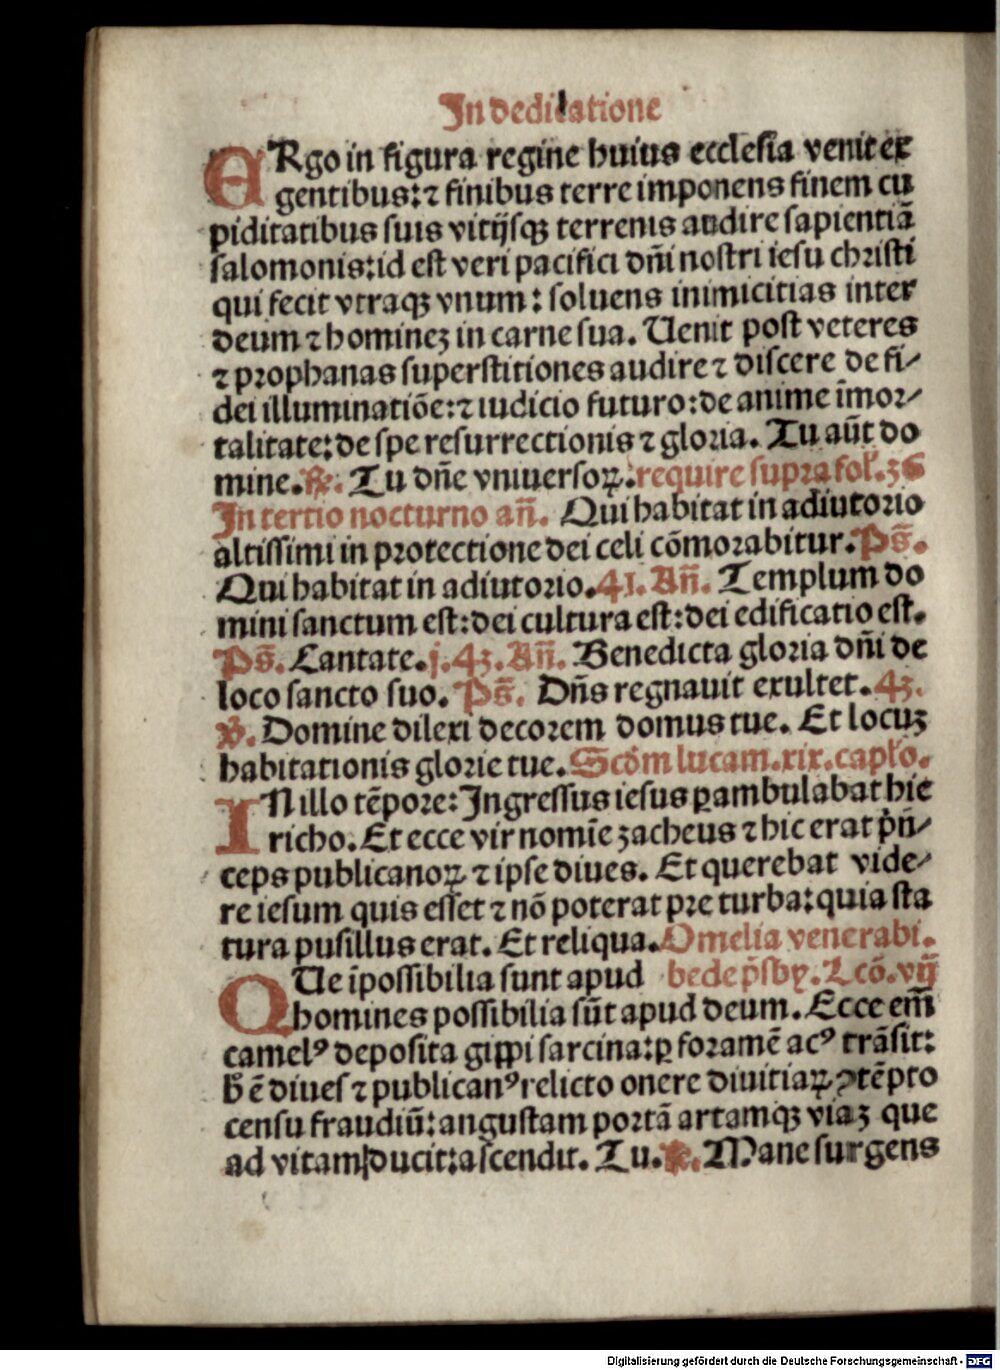 In dedicatione
ERgo in figura regine huius ecclesia venit ex
gentibus: ⁊ finibus terre imponens finem cu
piditatibus suis vitijsqꝫ terrenis audire sapientiā
salomonis: id est veri pacifici dn̄i nostri iesu christi
qui fecit vtraqꝫ vnum: soluens inimicitias inter
deum ⁊ homineꝫ in carne sua. Uenit post veteres
⁊ prophanas superstitiones audire ⁊ discere de fi/
dei illuminatiōe: ⁊ iudicio futuro: de anime īmor/
talitate: de spe resurrectionis ⁊ gloria. Tu aūt do
mine. ℟. Tu dn̄e vniuersoꝝ. require supra fol. 36
In tertio nocturno an̄. Qui habitat in adiutorio
altissimi in protectione dei celi cōmorabitur. Ps̄.
Qui habitat in adiutorio. 41. An̄. Templum do
mini sanctum est: dei cultura est: dei edificatio est.
Ps̄. Cantate. j. 43. An̄. Benedicta gloria dn̄i de
loco sancto suo. Ps̄. Dn̄s regnauit exultet. 43.
℣. Domine dilexi decorem domus tue. Et locuꝫ
habitationis glorie tue. Scd̄m lucam. xix. capło.
IN illo tēpore: Ingressus iesus ꝑambulabat hie
richo. Et ecce vir nomīe zacheus ⁊ hic erat p̄n̄/
ceps publicanoꝝ ⁊ ipse diues. Et querebat vide/
re iesum quis esset ⁊ nō poterat pre turba: quia sta
tura pusillus erat. Et reliqua. Omelia venerabi.
QUe īpossibilia sunt apud bede p̄sby. Lcō. vij
homines possibilia sūt apud deum. Ecce em̄
camelꝰ deposita gippi sarcina: ꝑ foramē acꝰ trāsit:
h̄ ē diues ⁊ publicanꝰ relicto onere diuitiaꝝ ꝯtēpto
censu fraudiū: angustam portā artamqꝫ viaꝫ que
ad vitam ducit: ascendit. Tu. ℟. Mane surgens
Digitalisierung gefördert durch die Deutsche Forschungsgemeinschaft - DFG